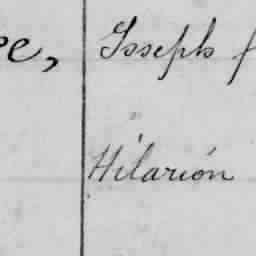 Joseph
Hilarión